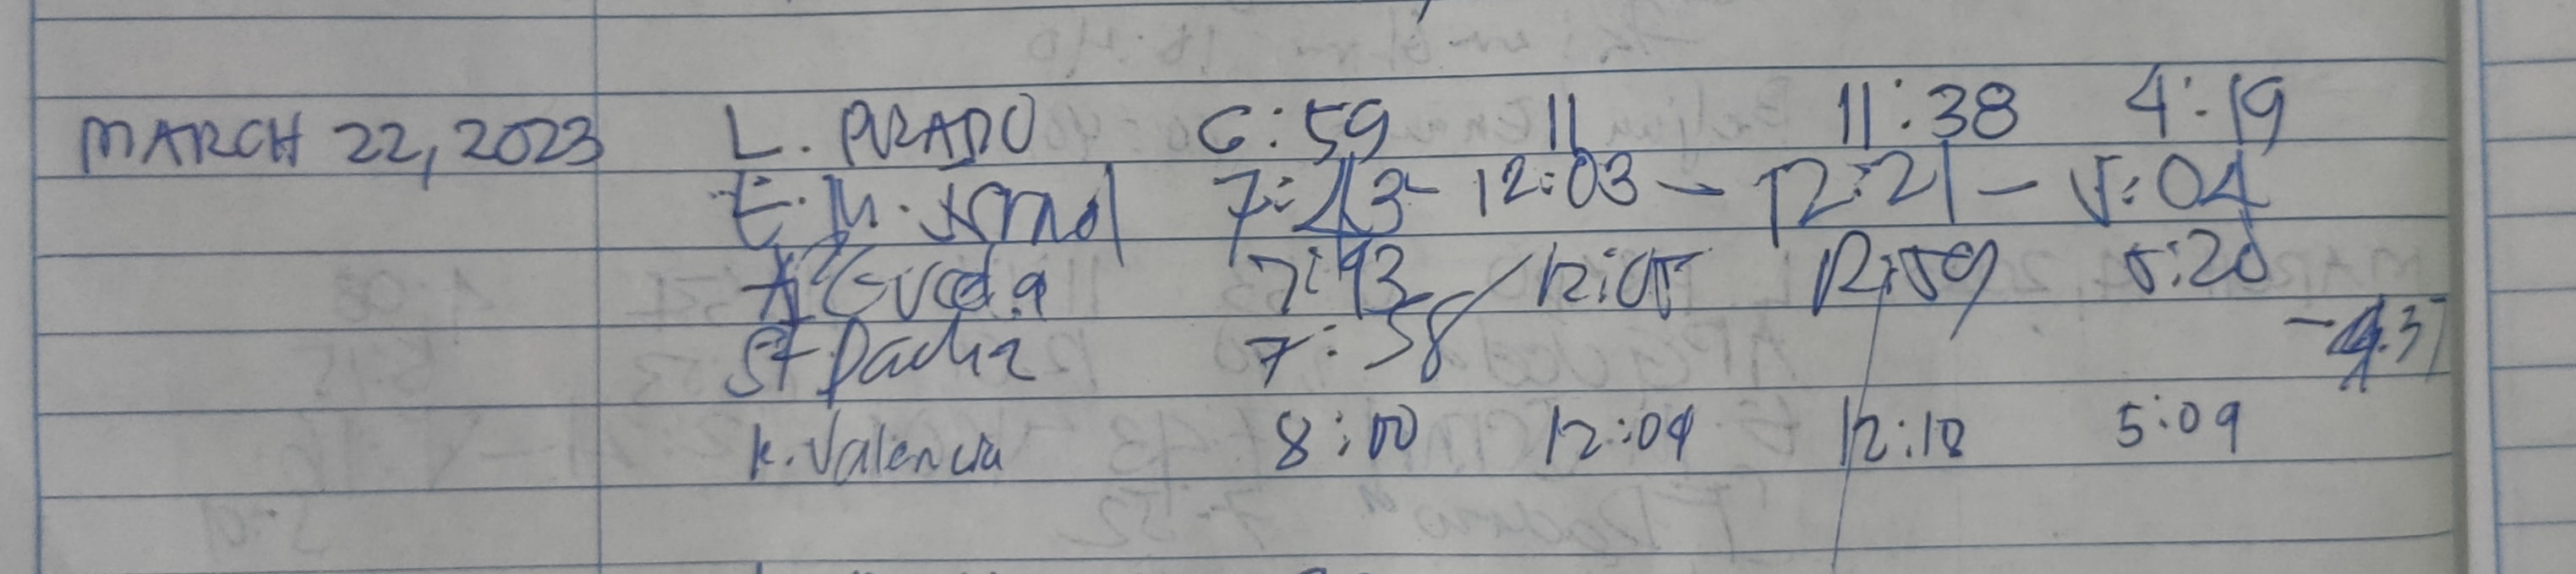 MARCH 22, 2023 L. PURADO 6:59 11 11:38 4:19
E. M. 7:43 - 12:03 - 12:21 - 5:04
7:43 12:05 12:59 5:20
7:58 - 4:37
K. Valencia 8:00 12:04 12:18 5:09